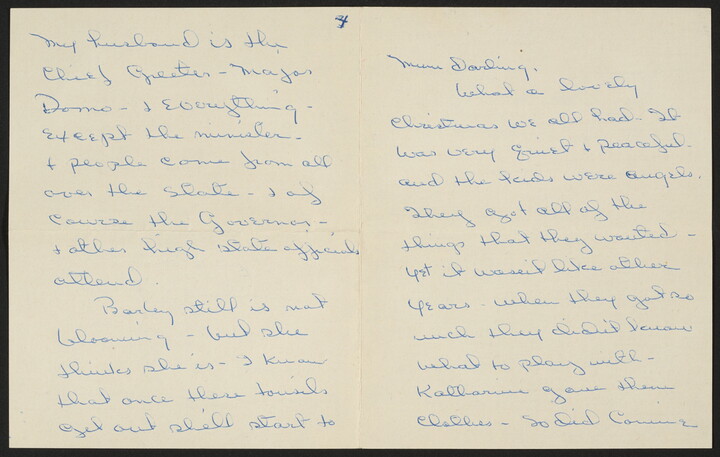 4
My husband is the
Chief Greeter - Major
Domo - & Everything -
except the minister -
& people come from all
over the State - & of
course the Governor -
& other high state officials
attend.
Barley still is not
blooming - but she
thinks she is - I know
that once these tonsils
get out she'll start to
Mum Darling.
What a lovely
Christmas we all had. It
was very quiet & peaceful.
and the kids were angels.
They got all of the
things that they wanted -
yet it wasn't like other
years - when they got so
much they didn't know
what to play with -
Katharine gave them
clothes - so did Connie